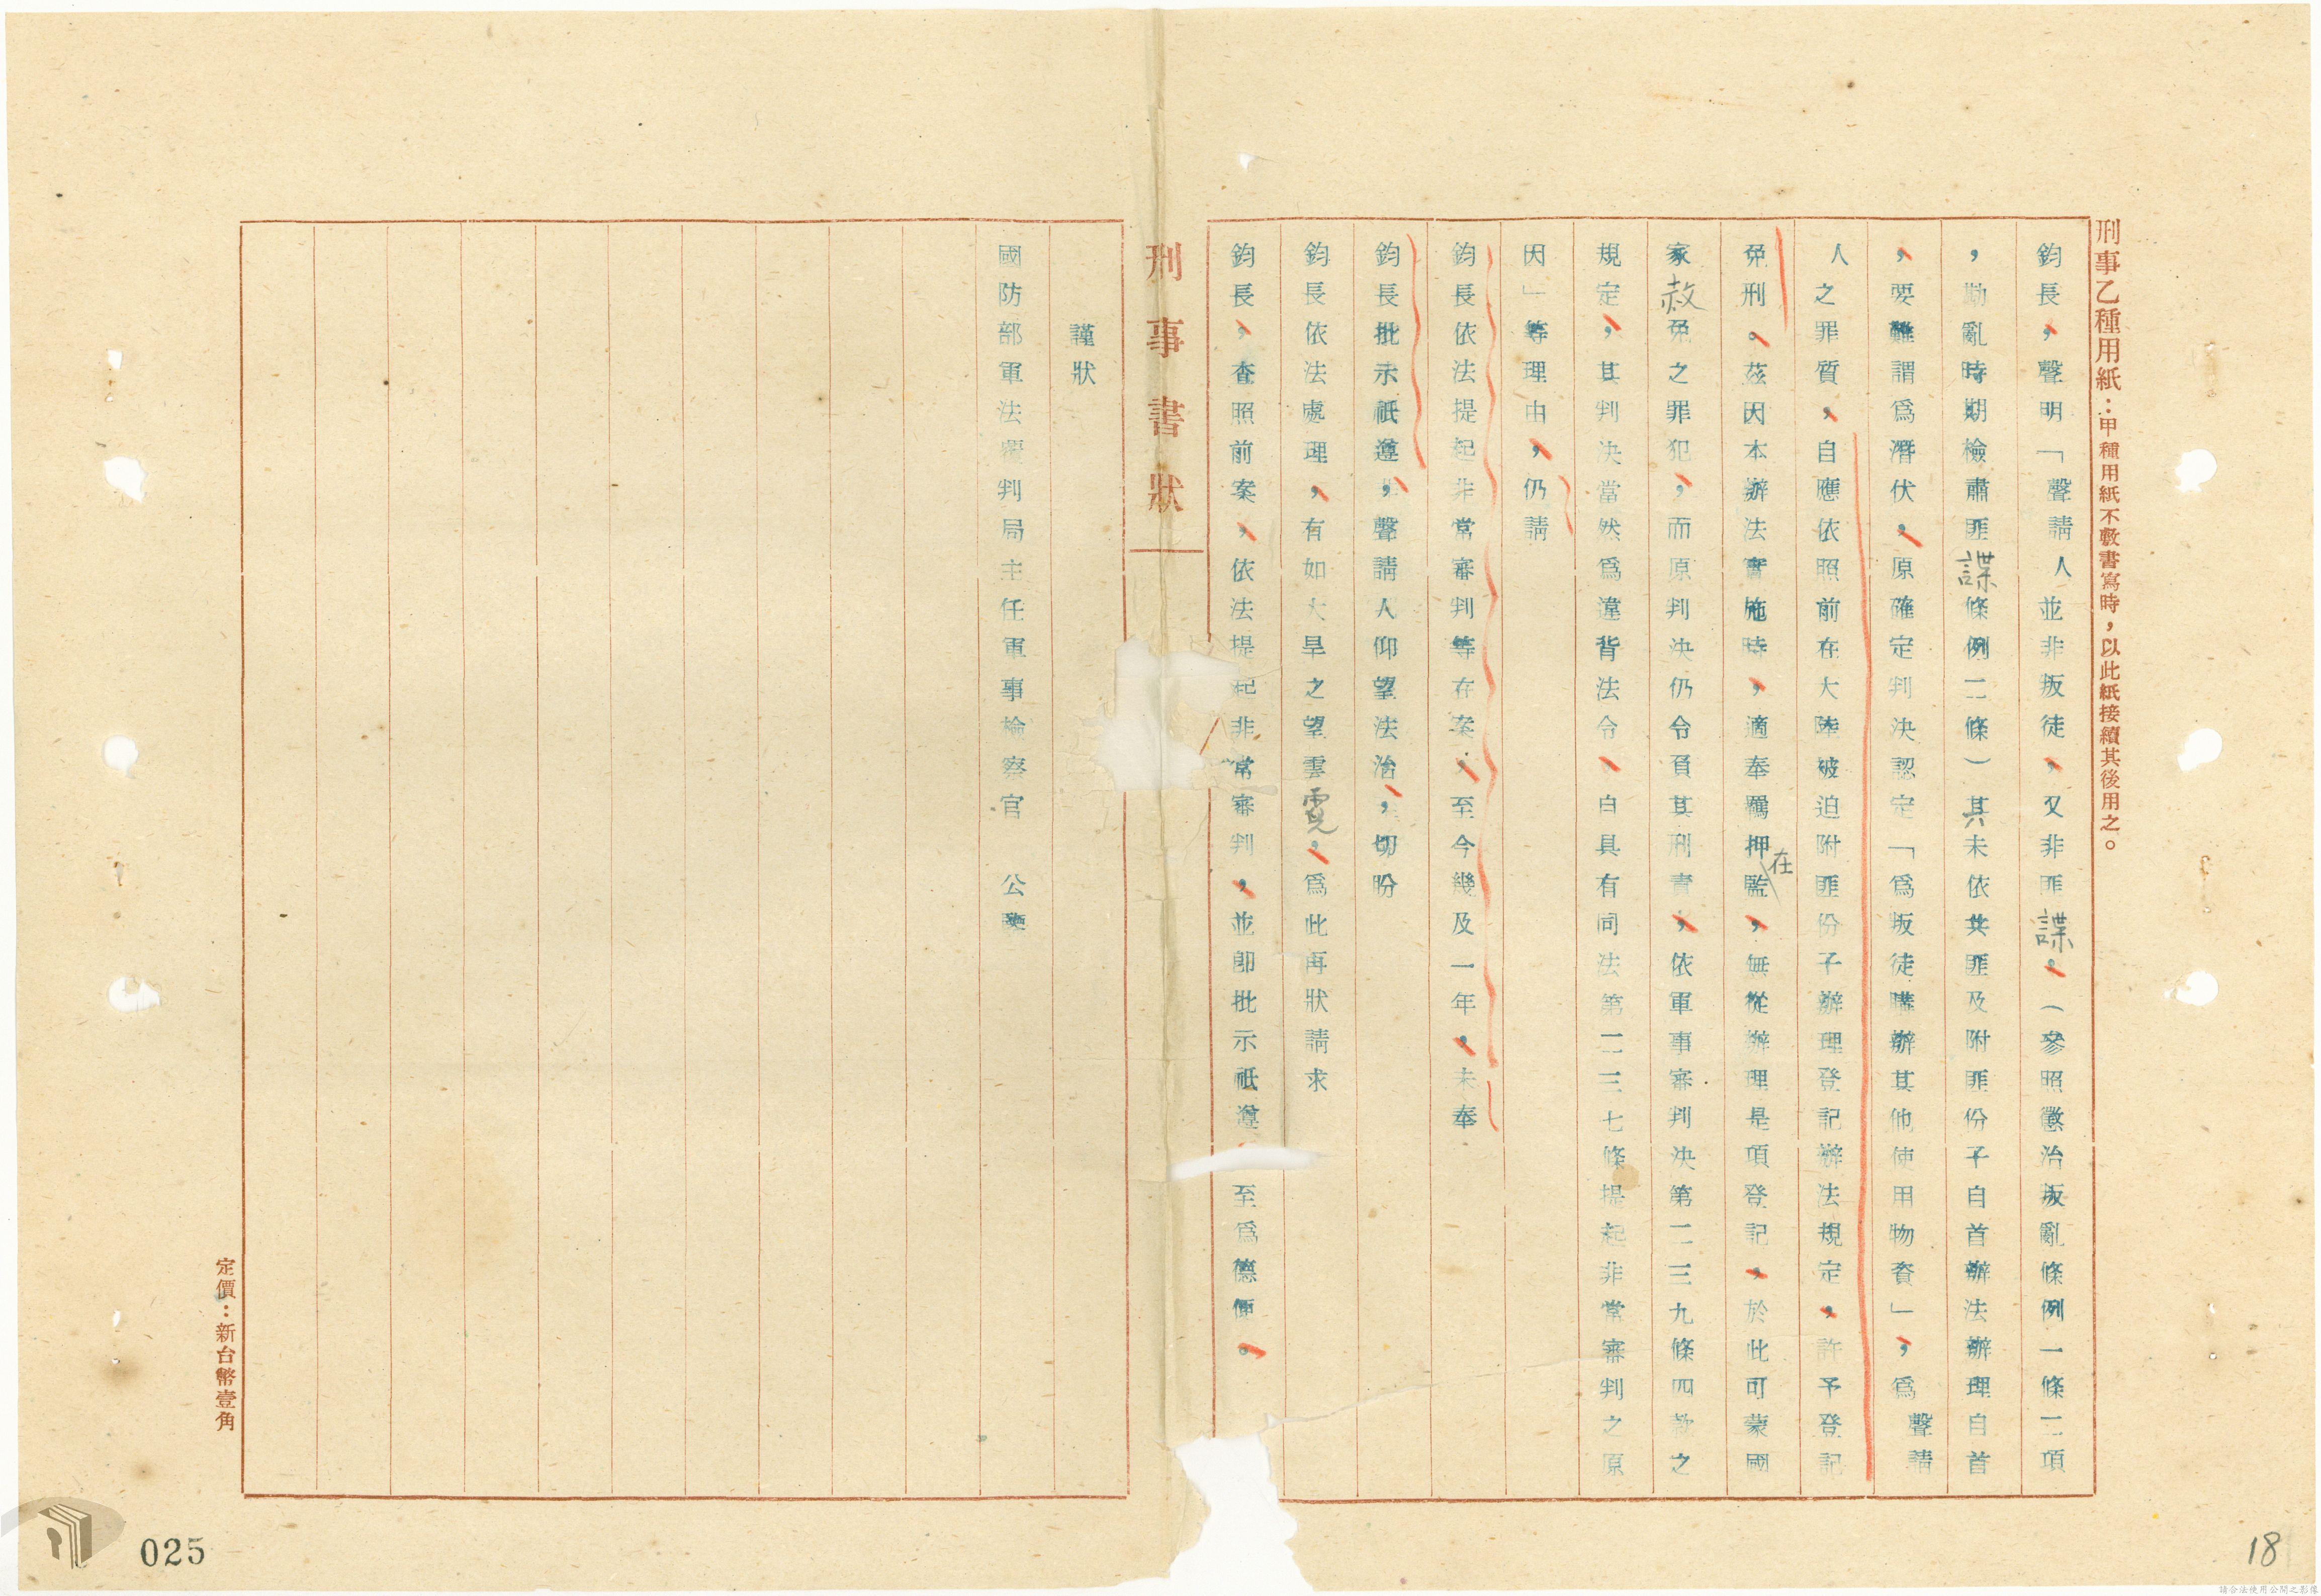 刑事乙種用紙：甲種用紙不敷書寫時，以此紙接續其後用之。
鈞長，聲明「聲請人並非叛徒，又非匪諜。（參照懲治叛亂條例一條二項
，勘亂時期檢肅匪諜條例二條）其未依共匪及附匪份子自首辦法辦理自首
，要難謂爲潛伏，原確定判決認定「爲叛徒購辦其他使用物資」，爲聲請
人之罪質，自應依照前在大陸被迫附匪份子辦理登記辦法規定，許予登記
免刑。茲因本辦法實施時，適奉羈押在監，無從辦理是項登記，於此可蒙國
家赦免之罪犯，而原判決仍令負其刑責，依軍事審判決第二三九條四款之
規定，其判決當然爲違背法令，自具有同法第二三七條提起非常審判之原
因」等理由，仍請
鈞長依法提起非常審判等在案，至今幾及一年，未奉
鈞長批示祇遵，聲請人仰望法治，切盼
鈞長依法處理，有如大旱之望雲霓，爲此再狀請求
鈞長，查照前案，依法提起非常審判，並卽批示祇遵 至爲德便。
刑事書狀
謹狀
國防部軍法覆判局主任軍事檢察官 公鑒
定價：新台幣壹角
025
18
請合法使用公開之影像